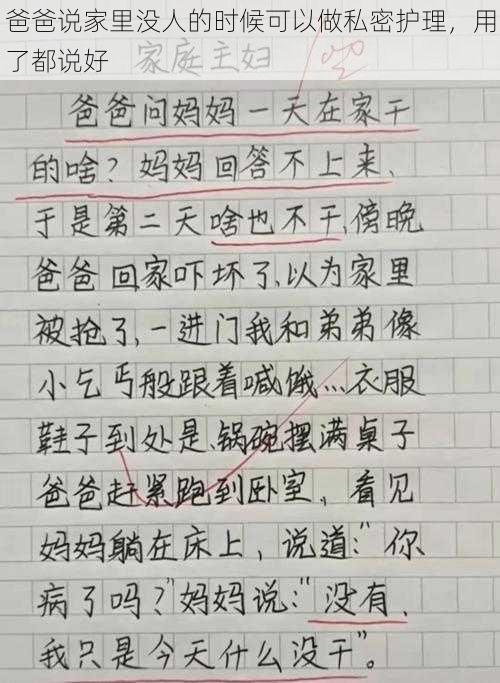 爸爸说家里没人的时候可以做私密护理，用
了都说好
家庭主妇
爸爸问妈妈一天在家干
的啥？妈妈回答不上来、
于是第二天啥也不干，傍晚
爸爸回家吓坏了，以为家里
被抢了，一进门我和弟弟像
小乞丐般跟着喊饿…衣服
鞋子到处是、锅碗摆满桌子
爸爸赶紧跑到卧室，看见
妈妈躺在床上，说道：“你
病了吗？”妈妈说：“没有、
我只是今天什么没干”。